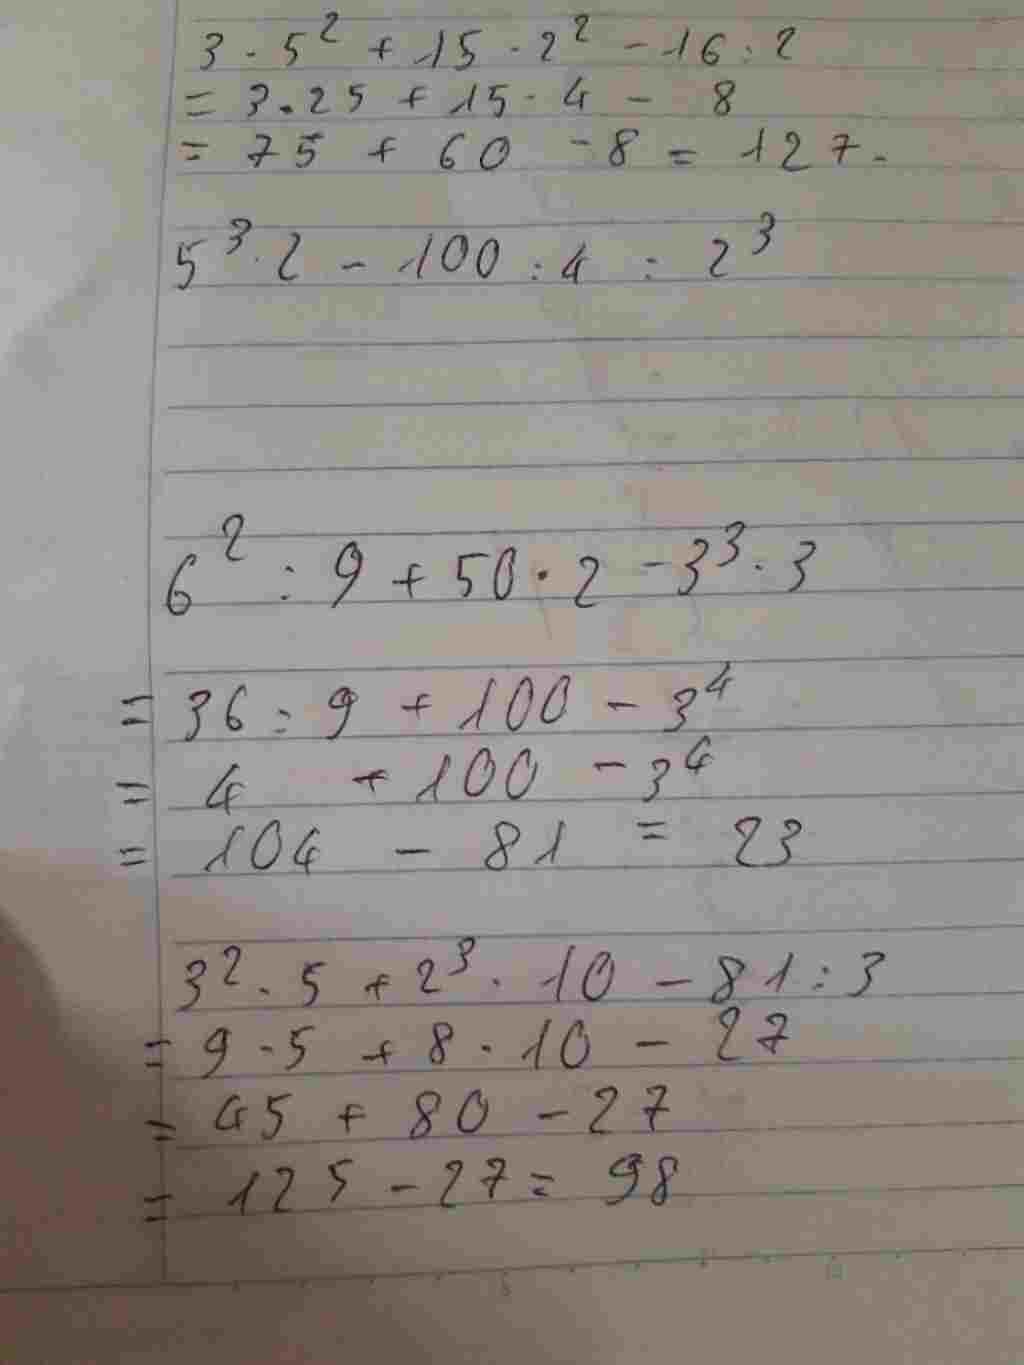 3 · 5² + 15 · 2² - 16 : 2
= 3 . 25 + 15 · 4 - 8
= 75 + 60 - 8 = 127.
5³ · 2 - 100 : 4 : 2³
6² : 9 + 50 · 2 - 3³ · 3
= 36 : 9 + 100 - 3⁴
= 4 + 100 - 3⁴
= 104 - 81 = 23
3² . 5 + 2³ . 10 - 81 : 3
= 9 · 5 + 8 · 10 - 27
= 45 + 80 - 27
= 125 - 27 = 98